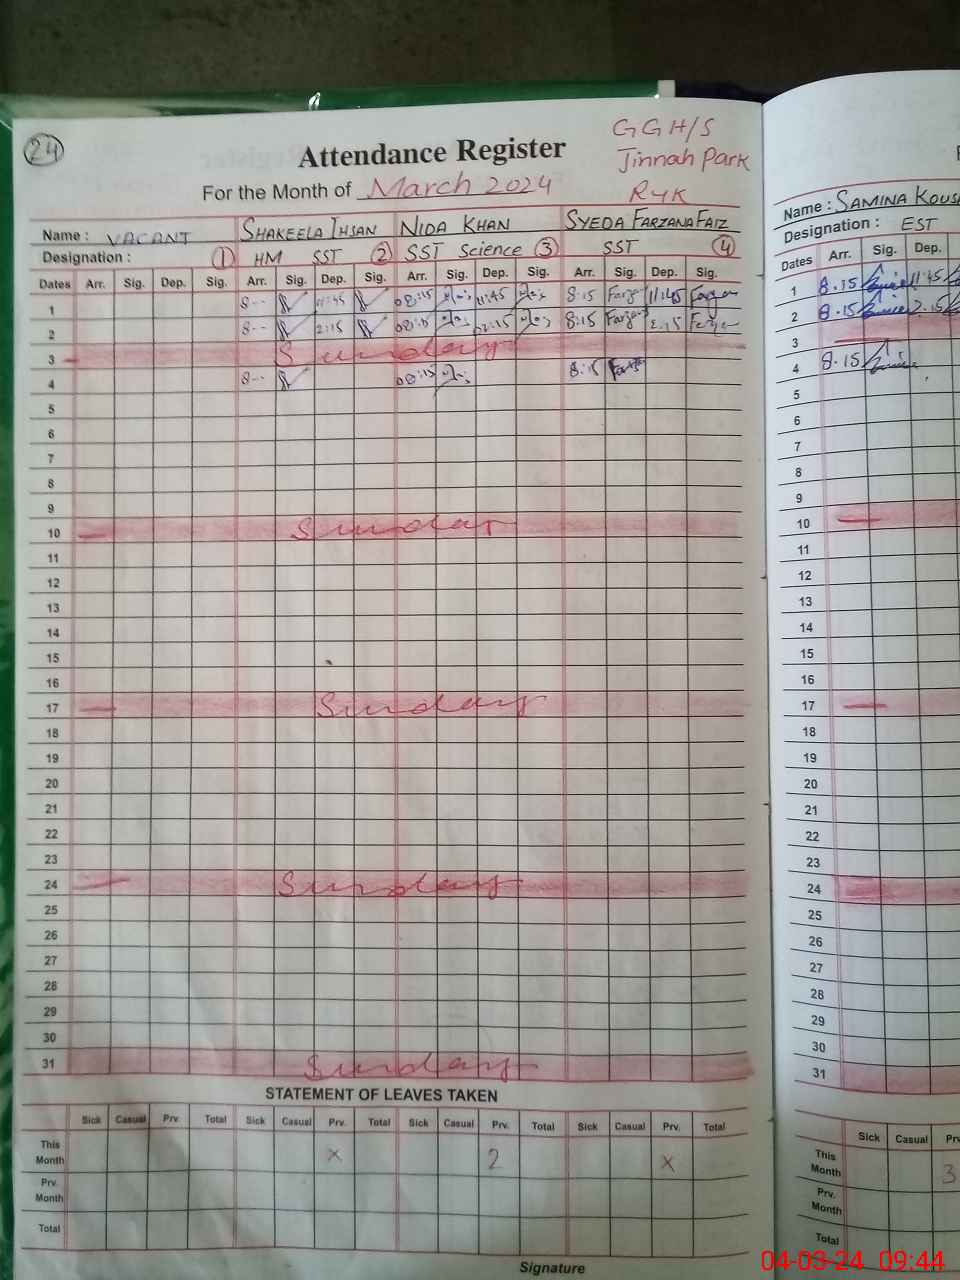 24
Attendance Register
GGH/S
Jinnah Park
RYK
For the Month of March 2024
Name : VACANT SHAKEELA IHSAN NIDA KHAN SYEDA FARZANA FAIZ
Designation : 1 HM SST 2 SST Science 3 SST 4
Dates Arr. Sig. Dep. Sig. Arr. Sig. Dep. Sig. Arr. Sig. Dep. Sig. Arr. Sig. Dep. Sig.
1 8-- 11:45 08:15 11:45 8:15 Farzan 11:45 Farzan
2 8-- 2:15 08:15 02:15 8:15 Farzan 2:15 Farzan
3 Sunday
4 8-- 08:15 8:15 Farzan
5
6
7
8
9
10 Sunday
11
12
13
14
15
16
17 Sunday
18
19
20
21
22
23
24 Sunday
25
26
27
28
29
30
31 Sunday
STATEMENT OF LEAVES TAKEN
Sick Casual Prv. Total Sick Casual Prv. Total Sick Casual Prv. Total Sick Casual Prv. Total
This Month x 2 x
Prv. Month
Total
Signature
Name : SAMINA KOUS
Designation : EST
Dates Arr. Sig. Dep.
1 8.15 11:45
2 8.15 2.15
3
4 8.15
5
6
7
8
9
10
11
12
13
14
15
16
17
18
19
20
21
22
23
24
25
26
27
28
29
30
31
Sick Casual Prv
This Month 3
Prv. Month
Total
04-03-24 09:44